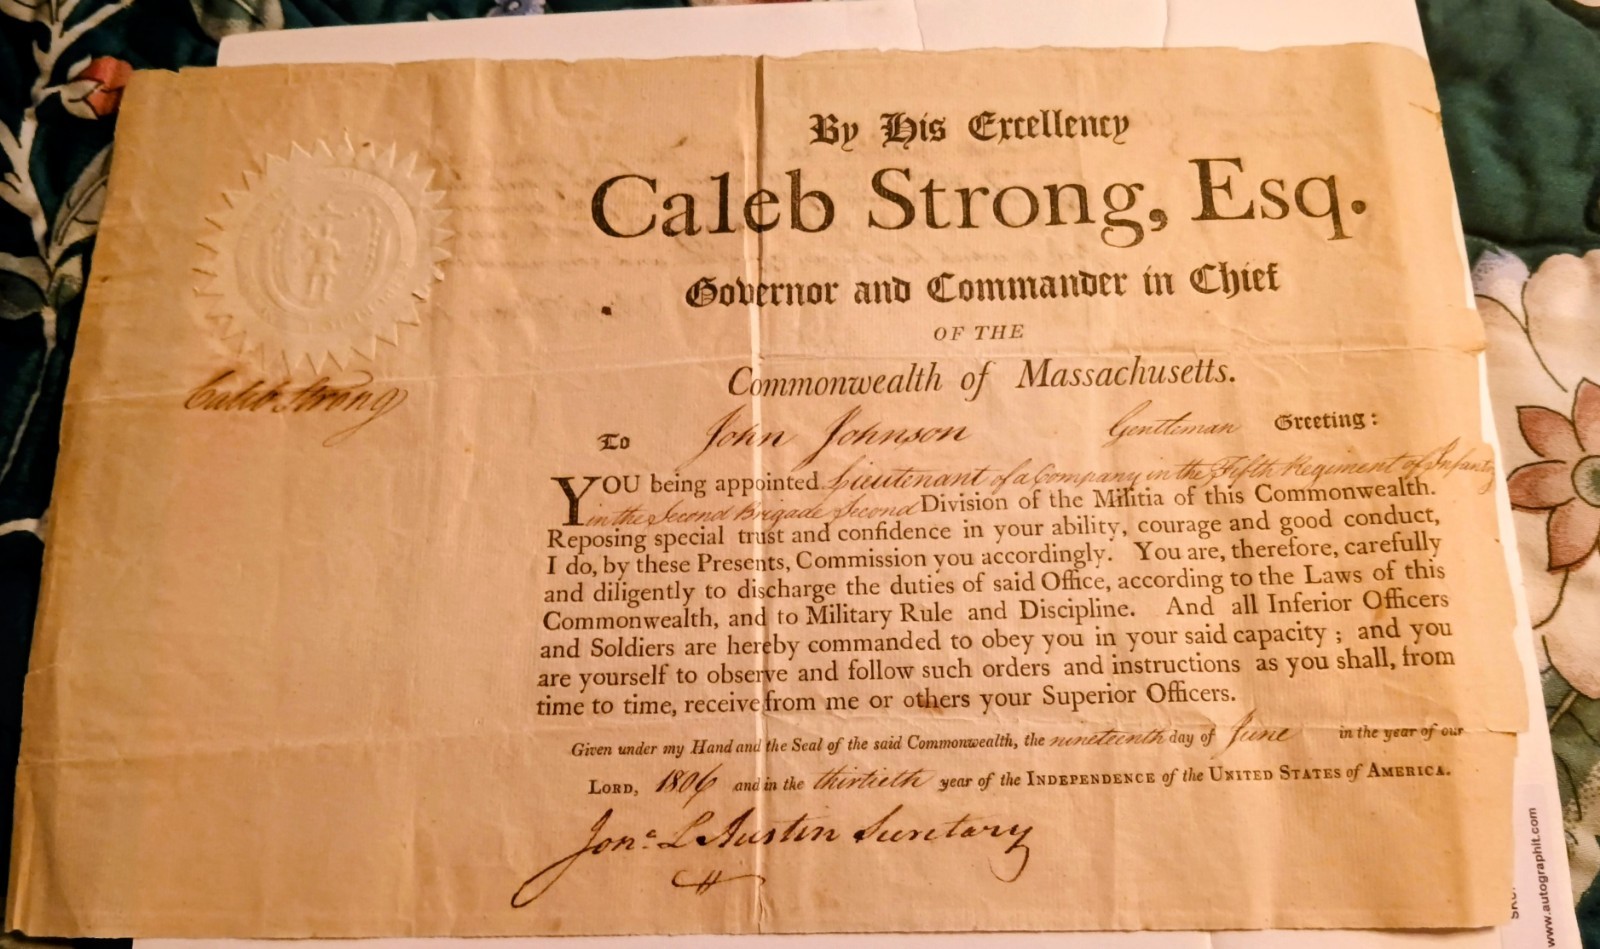 By His Excellency
Caleb Strong, Esq.
Governor and Commander in Chief
OF THE
Commonwealth of Massachusetts.
Caleb Strong
To John Johnson Gentleman Greeting:
YOU being appointed Lieutenant of a Company in the Fifth Regiment of Infantry
in the Second Brigade Second Division of the Militia of this Commonwealth.
Reposing special trust and confidence in your ability, courage and good conduct,
I do, by these Presents, Commission you accordingly. You are, therefore, carefully
and diligently to discharge the duties of said Office, according to the Laws of this
Commonwealth, and to Military Rule and Discipline. And all Inferior Officers
and Soldiers are hereby commanded to obey you in your said capacity ; and you
are yourself to observe and follow such orders and instructions as you shall, from
time to time, receive from me or others your Superior Officers.
Given under my Hand and the Seal of the said Commonwealth, the nineteenth day of June in the year of our
LORD, 1806 and in the thirtieth year of the INDEPENDENCE of the UNITED STATES of AMERICA.
Jon.a L Austin Secretary
www.autographit.com